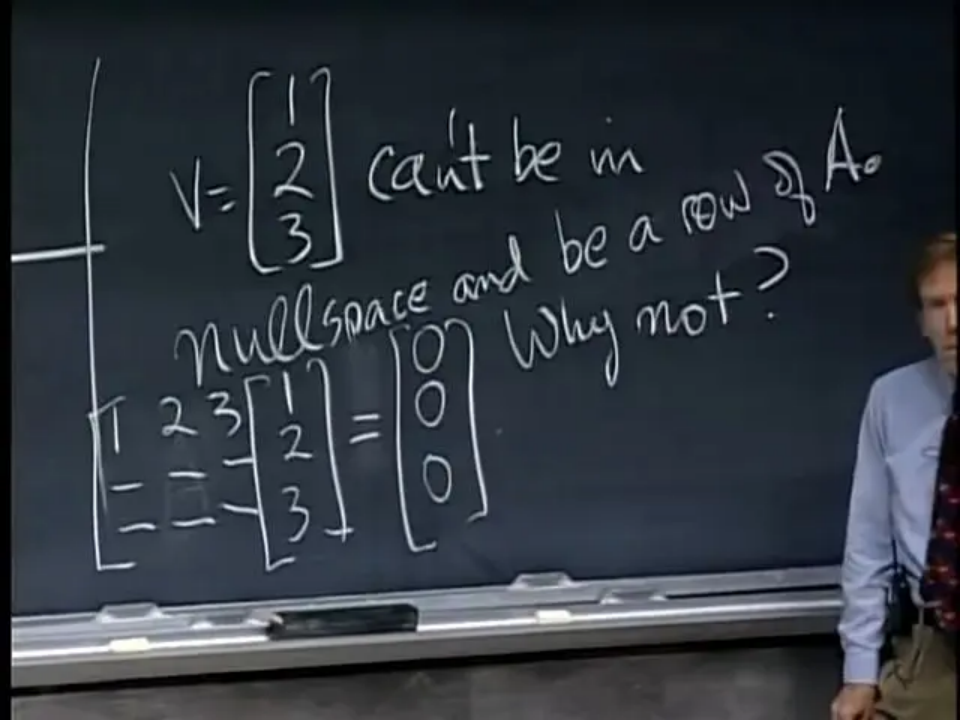 V= [1 2 3] can't be in
nullspace and be a row of A.
Why not?
[1 2 3 [1 = [0
- - - 2 0
- - - 3] 0]